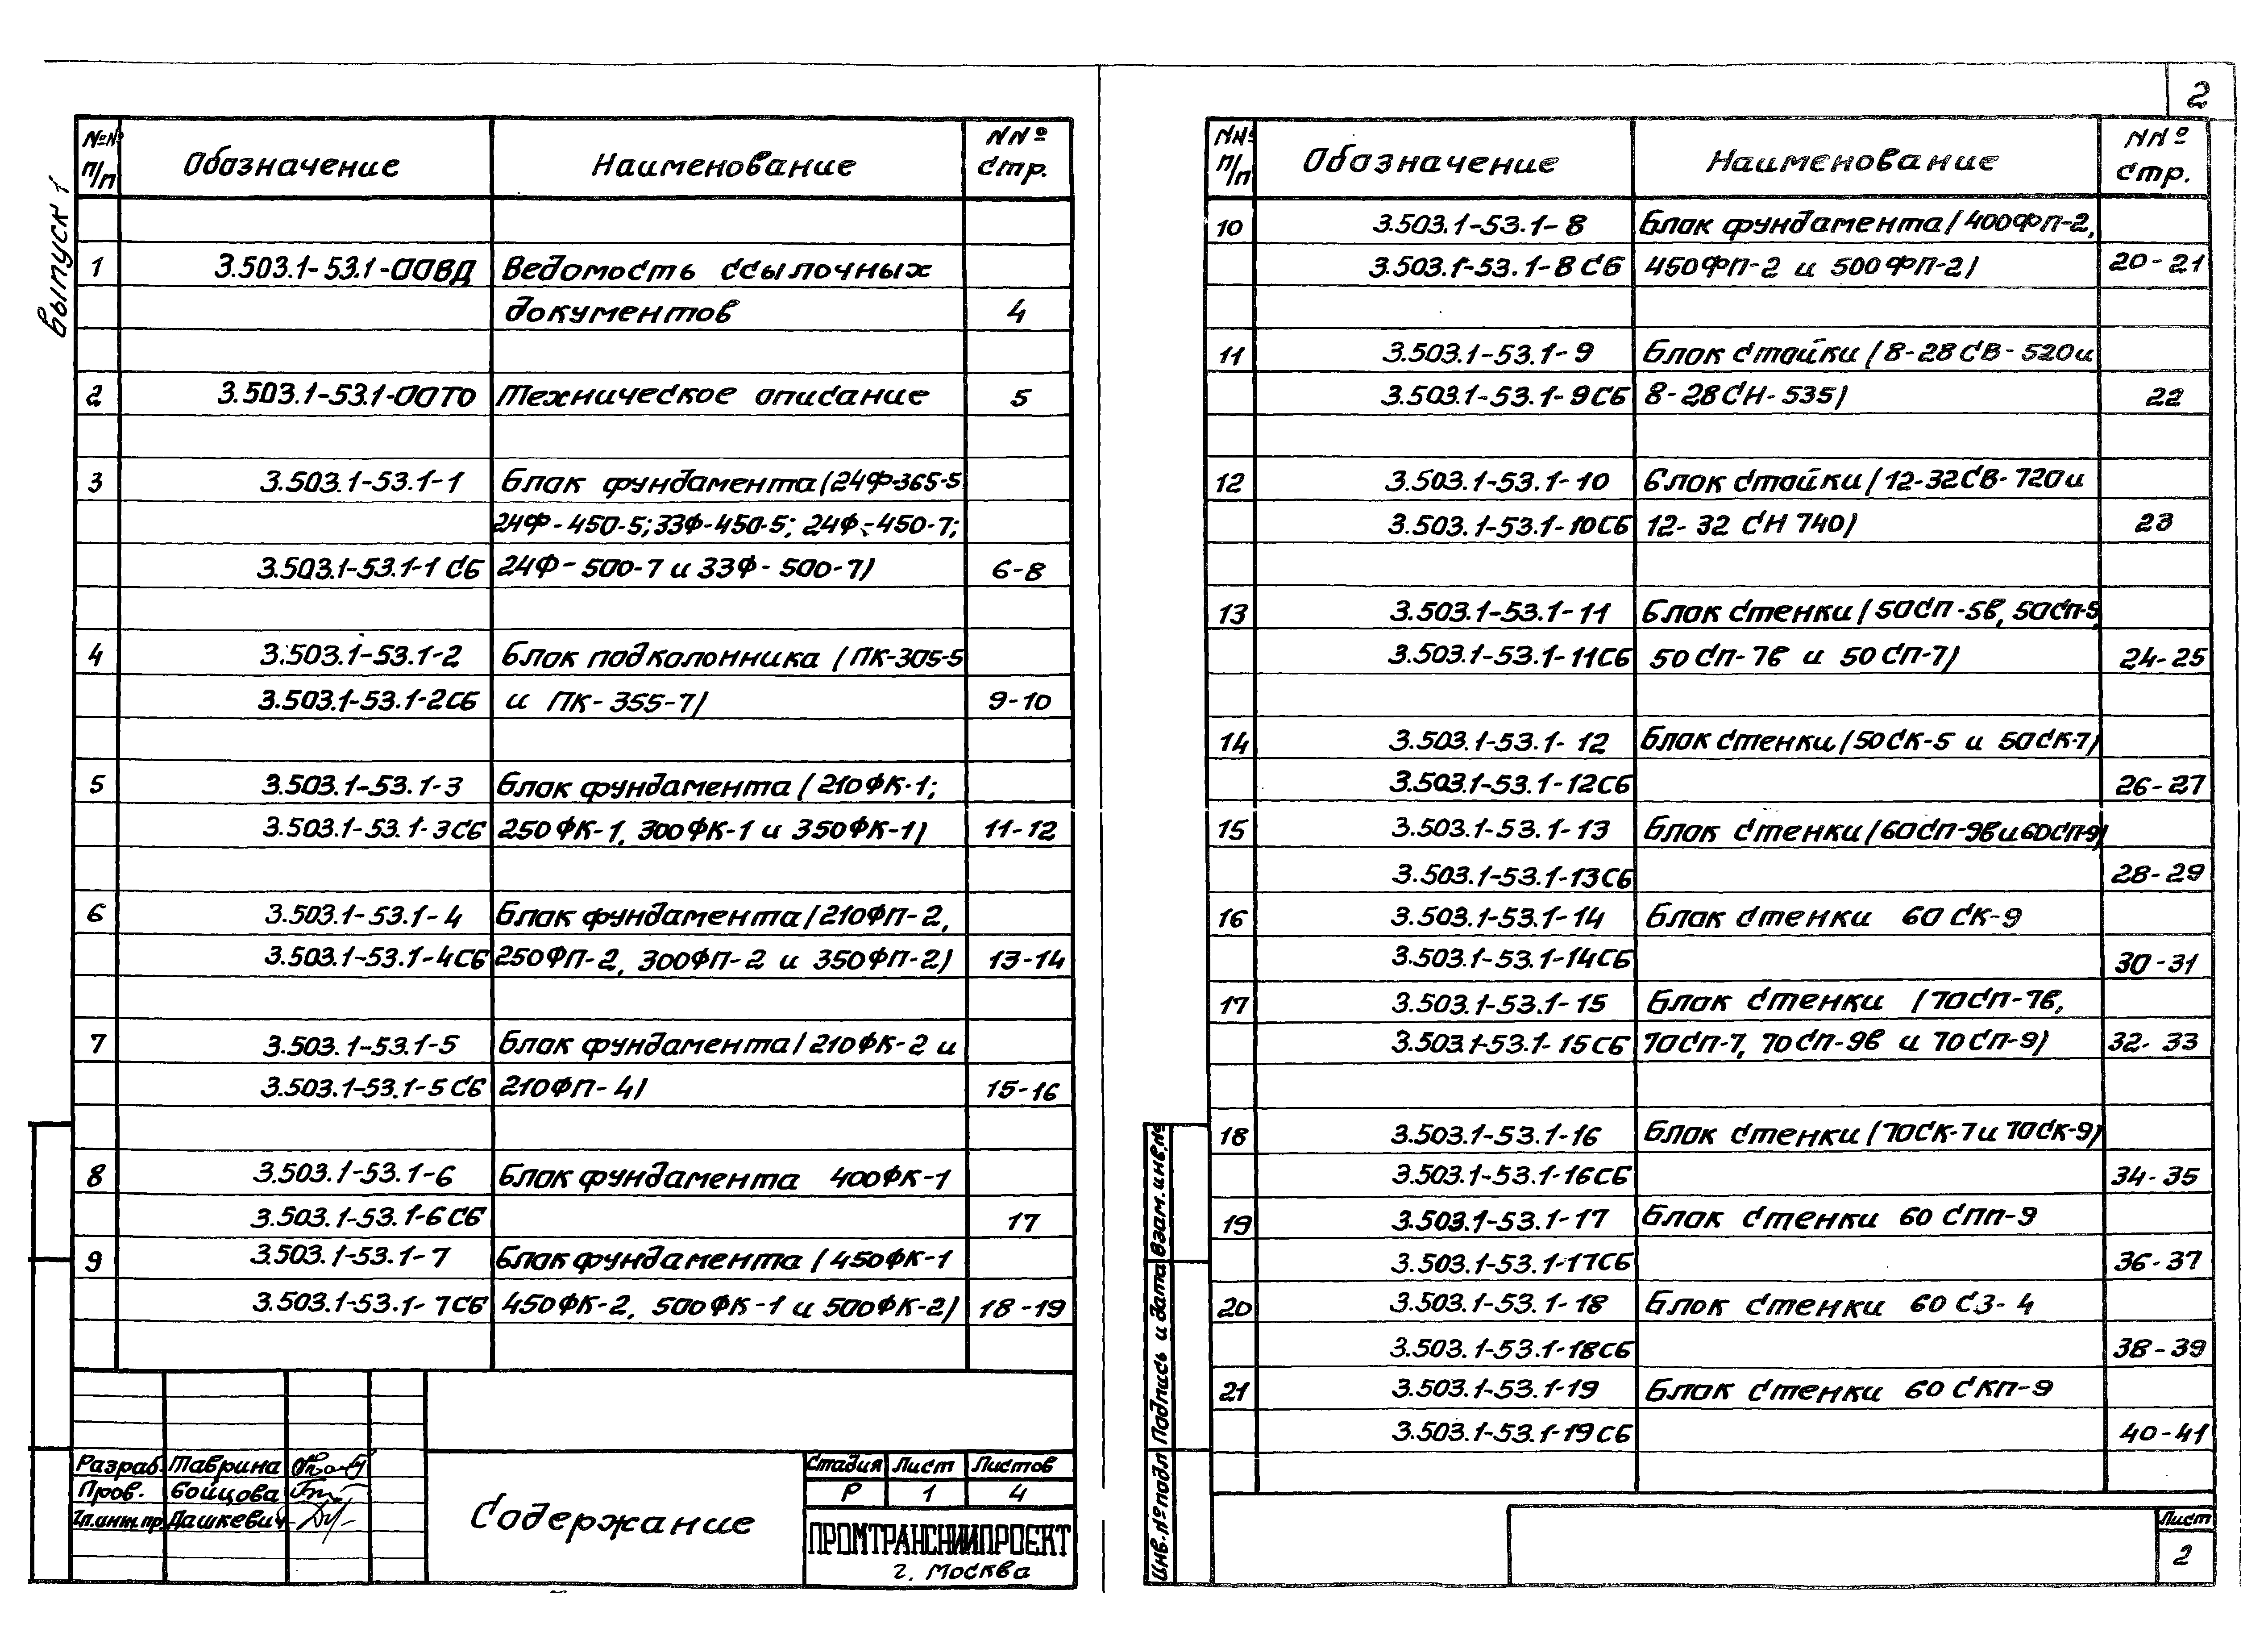 2
выпуск 1
№№ п/п Обозначение Наименование NNº стр.
1 3.503.1-53.1-00ВД Ведомость ссылочных
документов 4
2 3.503.1-53.1-00ТО Техническое описание 5
3 3.503.1-53.1-1 Блок фундамента (24Ф-365-5
24Ф-450-5; 33Ф-450-5; 24Ф-450-7;
3.503.1-53.1-1 СБ 24Ф-500-7 и 33Ф-500-7) 6-8
4 3.503.1-53.1-2 Блок подколонника (ПК-305-5
3.503.1-53.1-2СБ и ПК-355-7) 9-10
5 3.503.1-53.1-3 Блок фундамента (210ФК-1;
3.503.1-53.1-3СБ 250ФК-1, 300ФК-1 и 350ФК-1) 11-12
6 3.503.1-53.1-4 Блок фундамента (210ФП-2,
3.503.1-53.1-4СБ 250ФП-2, 300ФП-2 и 350ФП-2) 13-14
7 3.503.1-53.1-5 Блок фундамента (210ФК-2 и
3.503.1-53.1-5СБ 210ФП-4) 15-16
8 3.503.1-53.1-6 Блок фундамента 400ФК-1
3.503.1-53.1-6СБ 17
9 3.503.1-53.1-7 Блок фундамента (450ФК-1
3.503.1-53.1-7СБ 450ФК-2, 500ФК-1 и 500ФК-2) 18-19
Разраб. Таврина
Пров. Бойцова
Гл.инж.пр. Дашкевич
Содержание
Стадия Лист Листов
Р 1 4
ПРОМТРАНСНИИПРОЕКТ
г. Москва
NNº п/п Обозначение Наименование NNº стр.
10 3.503.1-53.1-8 Блок фундамента (400ФП-2,
3.503.1-53.1-8СБ 450ФП-2 и 500ФП-2) 20-21
11 3.503.1-53.1-9 Блок стойки (8-28СВ-520 и
3.503.1-53.1-9СБ 8-28СН-535) 22
12 3.503.1-53.1-10 Блок стойки (12-32СВ-720 и
3.503.1-53.1-10СБ 12-32 СН 740) 23
13 3.503.1-53.1-11 Блок стенки (50СП-5в, 50СП-5,
3.503.1-53.1-11СБ 50СП-7в и 50СП-7) 24-25
14 3.503.1-53.1-12 Блок стенки (50СК-5 и 50СК-7)
3.503.1-53.1-12СБ 26-27
15 3.503.1-53.1-13 Блок стенки (60СП-9в и 60СП-9)
3.503.1-53.1-13СБ 28-29
16 3.503.1-53.1-14 Блок стенки 60СК-9
3.503.1-53.1-14СБ 30-31
17 3.503.1-53.1-15 Блок стенки (70СП-7в,
3.503.1-53.1-15СБ 70СП-7, 70СП-9в и 70СП-9) 32-33
18 3.503.1-53.1-16 Блок стенки (70СК-7 и 70СК-9)
3.503.1-53.1-16СБ 34-35
19 3.503.1-53.1-17 Блок стенки 60 СПП-9
3.503.1-53.1-17СБ 36-37
20 3.503.1-53.1-18 Блок стенки 60 СЗ-4
3.503.1-53.1-18СБ 38-39
21 3.503.1-53.1-19 Блок стенки 60 СКП-9
3.503.1-53.1-19СБ 40-41
Инв.№ подл Подпись и дата Взам.инв.№
Лист
2